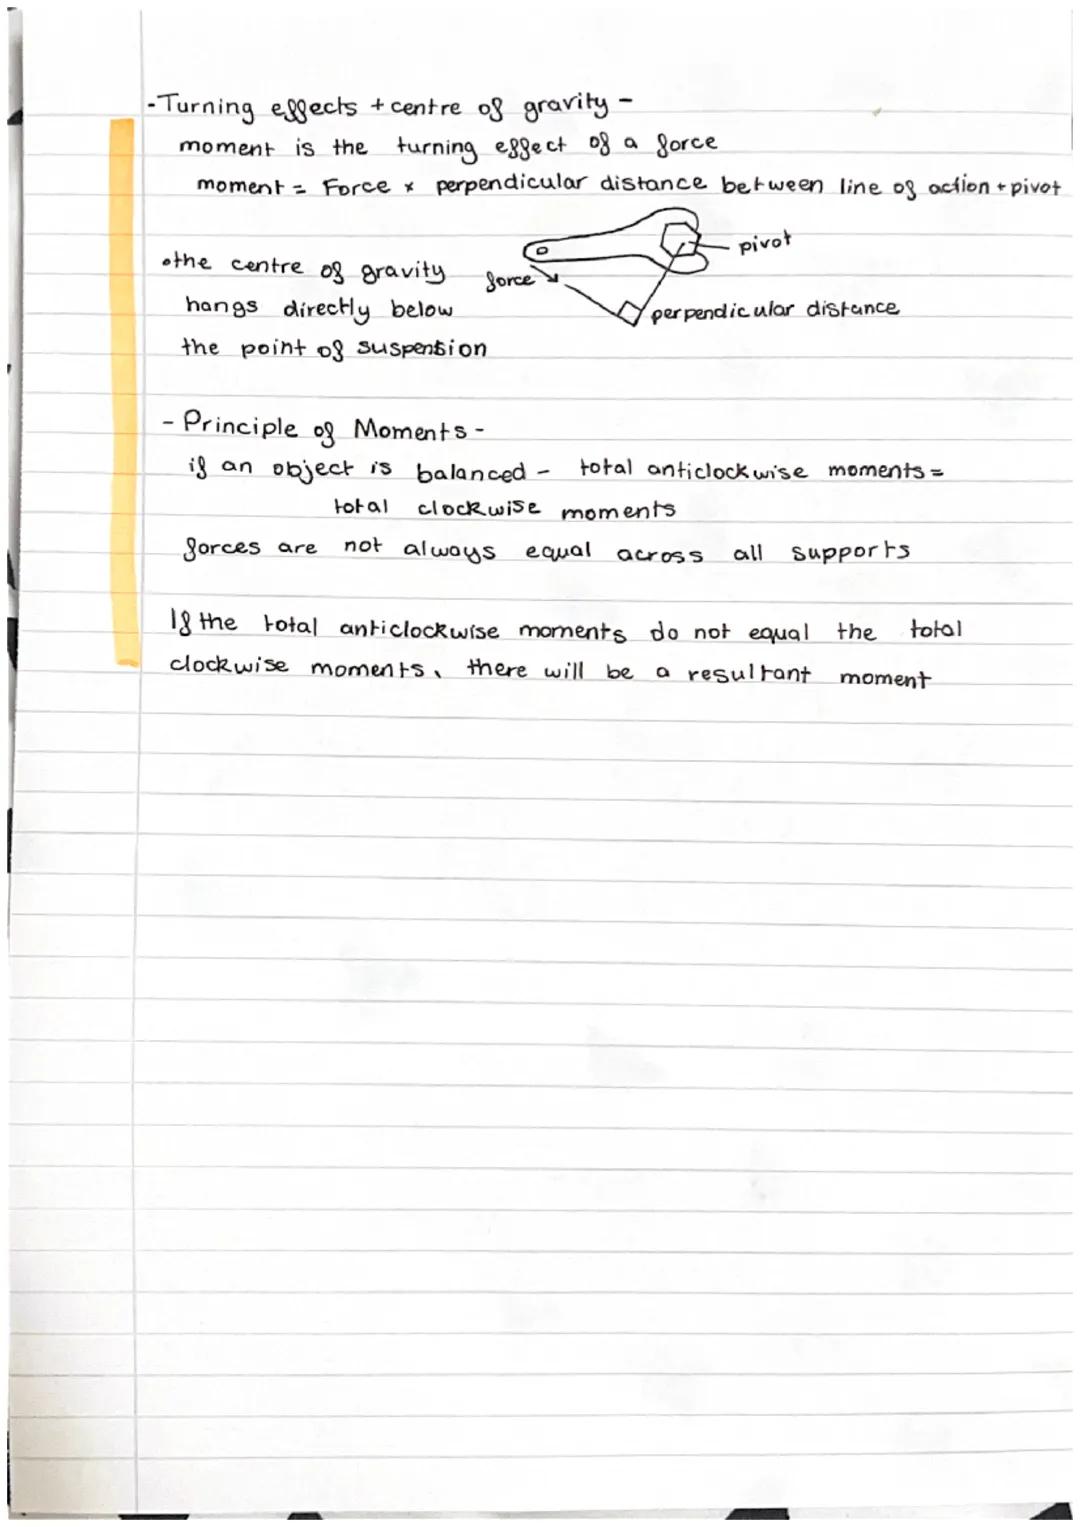 -Turning effects + centre of gravity -
moment is the turning effect of a force
moment = Force x perpendicular distance between line of action + pivot
pivot
•the centre of gravity
force
hangs directly below
perpendicular distance
the point of suspension
- Principle of Moments -
if an object is balanced - total anticlockwise moments =
total clockwise moments
forces are not always equal across all supports
If the total anticlockwise moments do not equal the total
clockwise moments, there will be a resultant moment